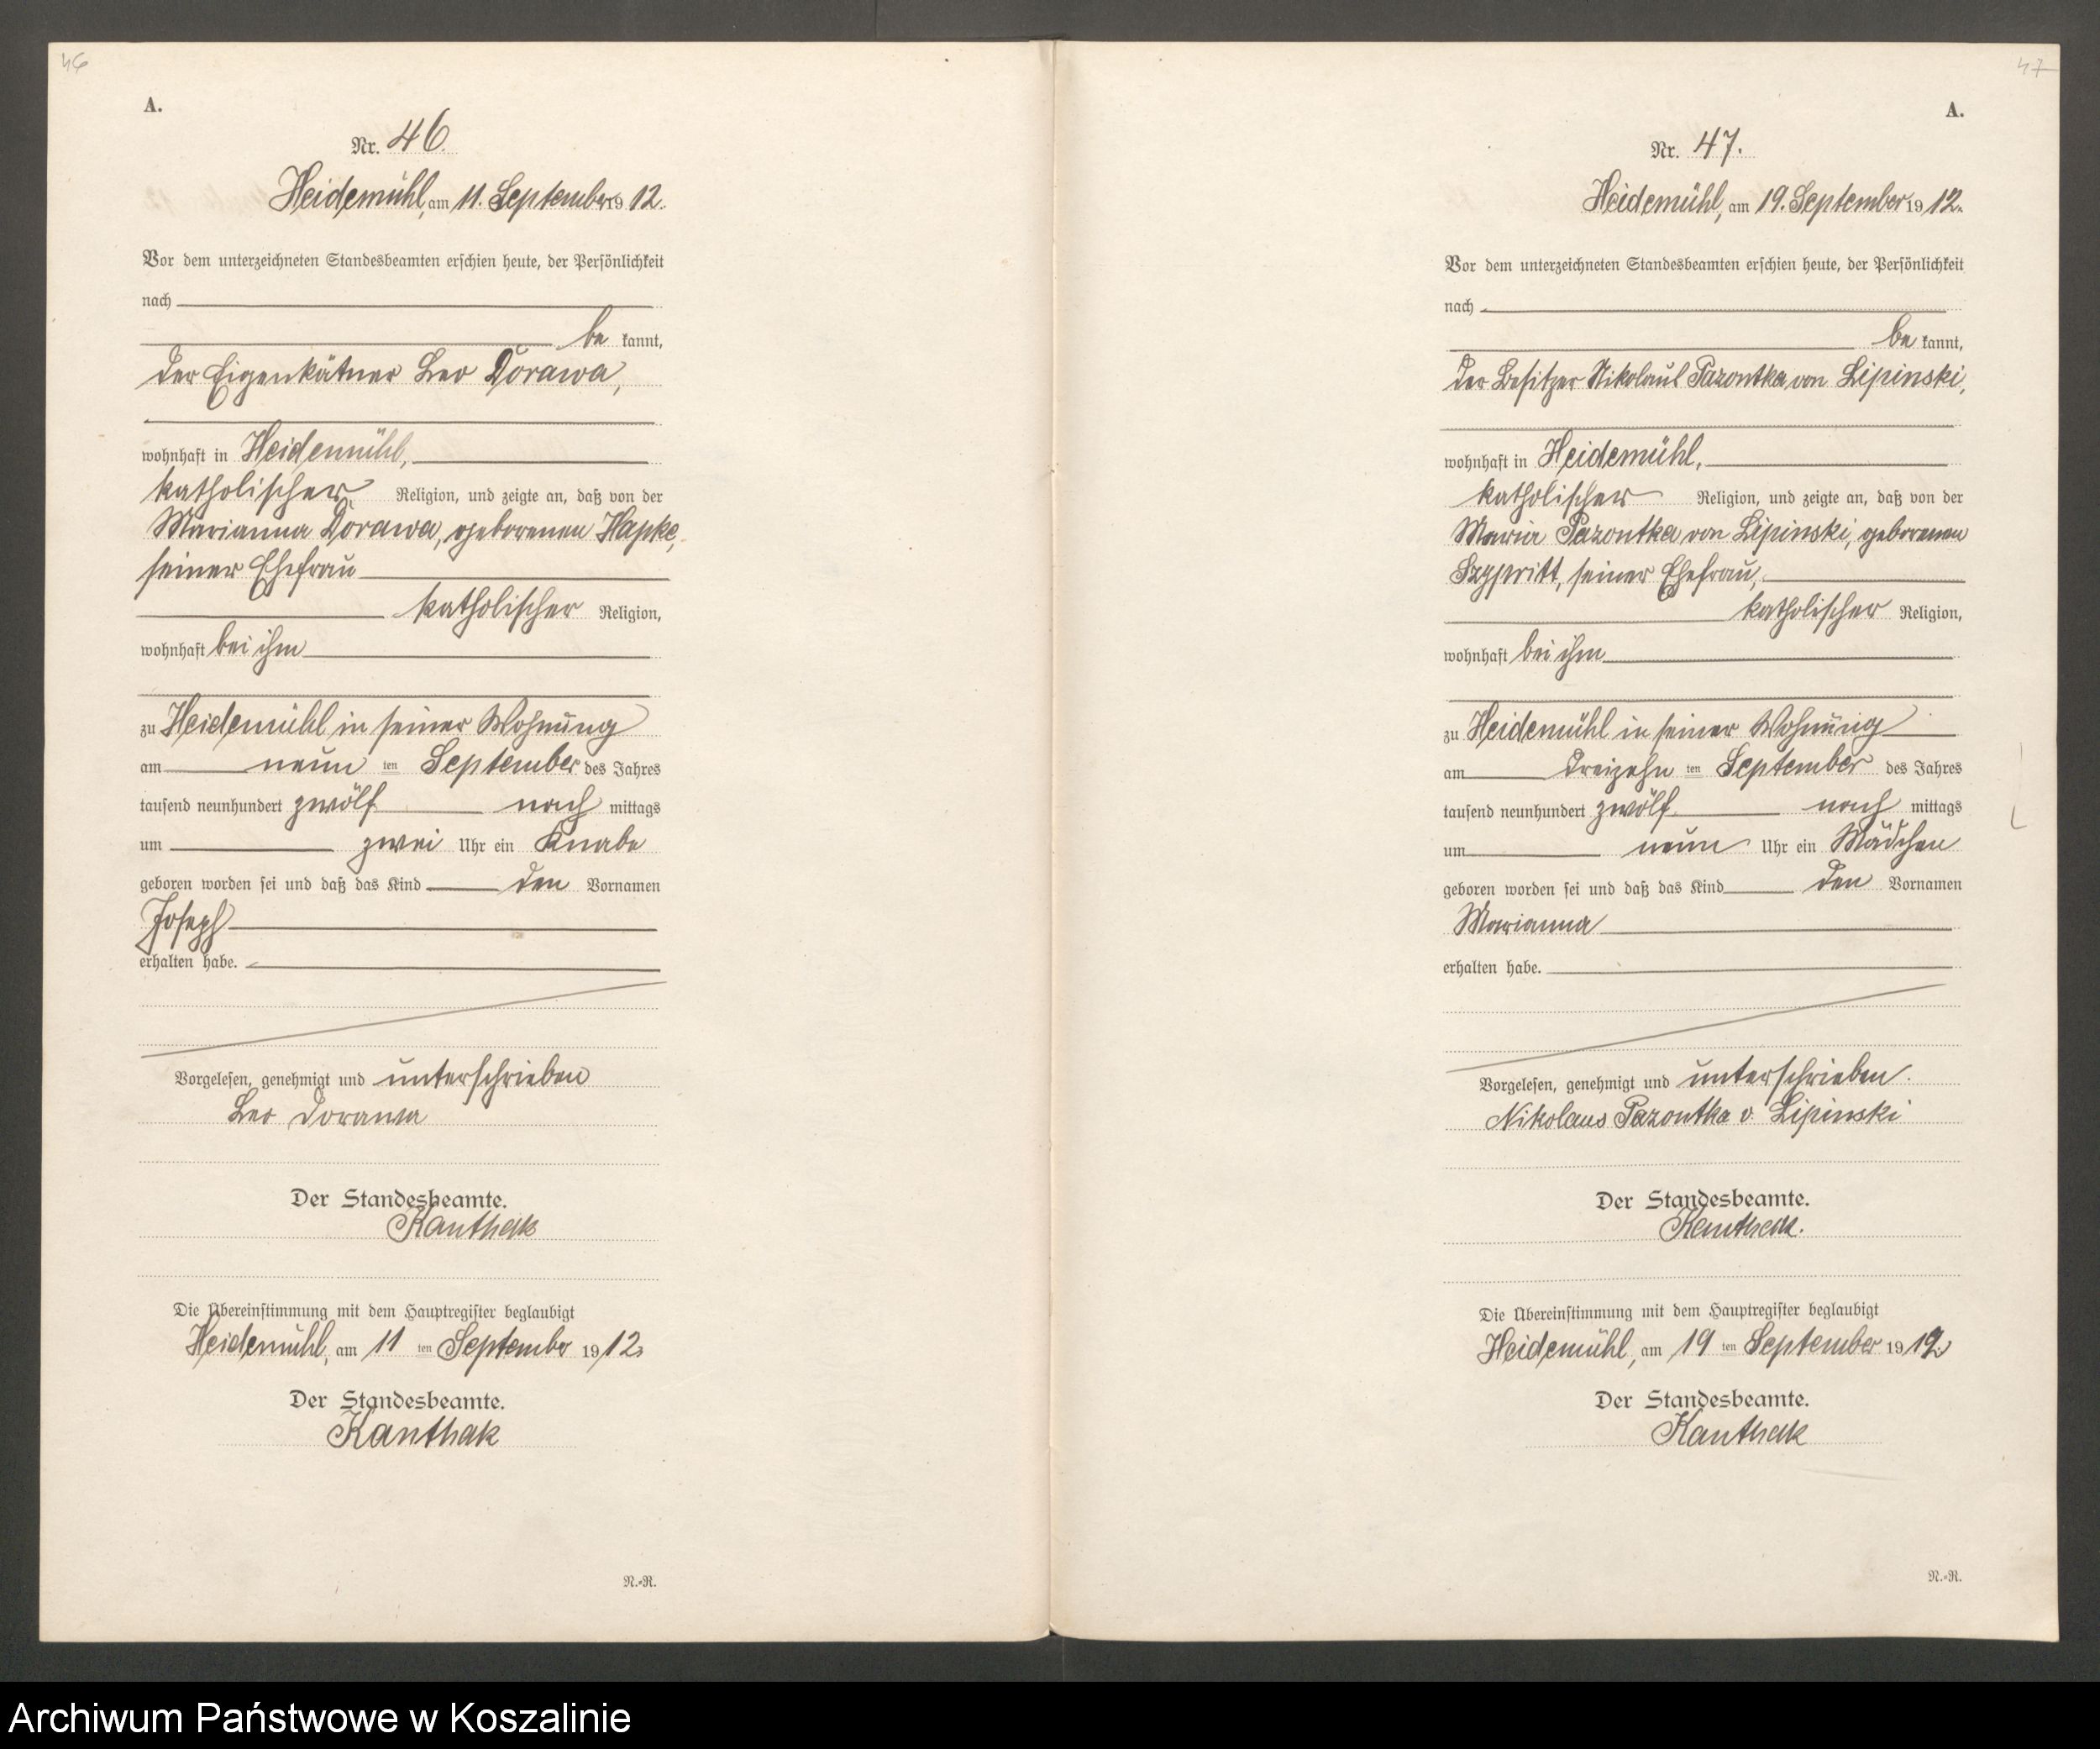 46
A.
Nr. 46.
Heidemühl, am 11. September 1912.
Vor dem unterzeichneten Standesbeamten erschien heute, der Persönlichkeit
nach
be kannt,
der Eigenkätner Leo Dorawa,
wohnhaft in Heidemühl,
katholischer Religion, und zeigte an, daß von der
Marianna Dorawa, geborenen Hapke,
seiner Ehefrau
katholischer Religion,
wohnhaft bei ihm
zu Heidemühl in seiner Wohnung
am neun ten September des Jahres
tausend neunhundert zwölf nach mittags
um zwei Uhr ein Knabe
geboren worden sei und daß das Kind den Vornamen
Joseph
erhalten habe.
Vorgelesen, genehmigt und unterschrieben
Leo Dorawa
Der Standesbeamte.
Kanthak
Die Übereinstimmung mit dem Hauptregister beglaubigt
Heidemühl, am 11 ten September 1912.
Der Standesbeamte.
Kanthak
N.=R.
47
A.
Nr. 47.
Heidemühl, am 19. September 1912.
Vor dem unterzeichneten Standesbeamten erschien heute, der Persönlichkeit
nach
be kannt,
der Besitzer Nikolaus Pazontka von Lipinski,
wohnhaft in Heidemühl,
katholischer Religion, und zeigte an, daß von der
Maria Pazontka von Lipinski, geborenen
seiner Ehefrau,
katholischer Religion,
wohnhaft bei ihm
zu Heidemühl in seiner Wohnung
am dreizehn ten September des Jahres
tausend neunhundert zwölf nach mittags
um neun Uhr ein Mädchen
geboren worden sei und daß das Kind den Vornamen
Marianna
erhalten habe.
Vorgelesen, genehmigt und unterschrieben.
Nikolaus Pazontka v. Lipinski
Der Standesbeamte.
Kanthak.
Die Übereinstimmung mit dem Hauptregister beglaubigt
Heidemühl, am 19 ten September 1912.
Der Standesbeamte.
Kanthak
N.=R.
Archiwum Państwowe w Koszalinie